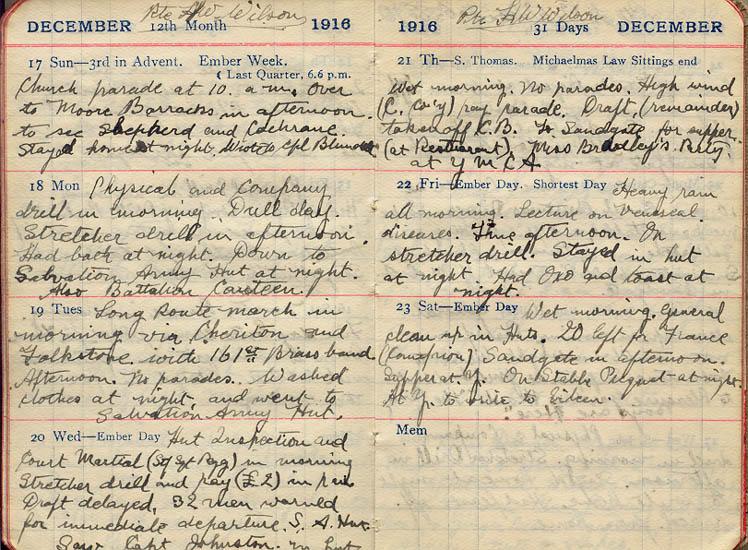 Pte H W Wilson
DECEMBER 12th Month 1916
17 Sun—3rd in Advent. Ember Week.
Last Quarter, 6.6 p.m.
Church parade at 10. a.m. Over
to Moore Barracks in afternoon.
to see Shepherd and Cochrane.
Stayed home at night. Wrote to Cpl
18 Mon Physical and Company
drill in morning. Dull day.
Stretcher drill in afternoon.
Had bath at night. Down to
Salvation Army Hut at night.
Also Battalion Canteen.
19 Tues Long Route march in
morning via Cheriton and
Folkstone with 161st Brass band.
Afternoon. No parades. Washed
clothes at night, and went to
Salvation Army Hut.
20 Wed—Ember Day Hut Inspection and
Court Martial (Sgt) in morning
Stretcher drill and pay (£2) in p.m.
Draft delayed, 32 men warned
for immediate departure. S. A. Hut.
Saw Capt Johnston. in hut
Pte H W Wilson
1916 31 Days DECEMBER
21 Th—S. Thomas. Michaelmas Law Sittings end
Wet morning. No parades. High wind
(C. Co'y) pay parade. Draft, (remainder)
taken off C.B. To Sandgate for supper.
(at Restaurant). Miss Bradley's Party.
at Y M C A
22 Fri—Ember Day. Shortest Day Heavy rain
all morning. Lecture on Venereal
diseases. Fine afternoon. On
stretcher drill. Stayed in hut
at night. Had Oxo and toast at
night.
23 Sat—Ember Day Wet morning. General
clean up in Huts. 20 left for France
Sandgate in afternoon.
Supper at Y. On Stable Picquet at night.
At Y. to write to Eileen.
Mem